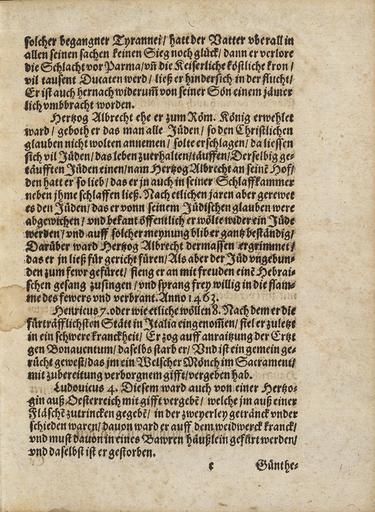 solcher begangner Tyrannei/ hatt der Vatter vberall in
allen seinen sachen keinen Sieg noch glück/ dann er verlore
die Schlacht vor Parma/ vñ die Keiserliche köstliche kron/
vil tausent Ducaten werd/ ließ er hindersich in der flucht/
Er ist auch hernach widerum̃ von seiner Sön einem jämer
lich vmbbracht worden.
Hertzog Albrecht ehe er zum Röm. König erwehlet
ward/ geboth er das man alle Jüden/ so den Christlichen
glauben nicht wolten annemen/ solte erschlagen/ da liessen
sich vil Jüden/ das leben zuerhalten/ täuffen/ Derselbig ge-
täufften Jüden einen/ nam Hertzog Albrecht an seinẽ Hof/
den hatt er so lieb/ das er jn auch in seiner Schlaffkammer
neben jhme schlaffen ließ. Nach etlichen jaren aber gerewet
es den Jüden/ das er vonn seinem Jüdischen glauben were
abgewichen/ vnd bekant öffentlich er wölte wider ein Jüde
werden/ vnd auff solcher meynung bliber gantz beständig/
Darüber ward Hertzog Albrecht dermassen ergrimmet/
das er in ließ für gericht füren/ Als aber der Jüd vngebun-
den zum fewr gefüret/ fieng er an mit freuden eine Hebrai-
schen gesang zusingen/ vnd sprang frey willig in die flam-
me des fewers vnd verbrant. Anno 1463.
Henricus 7. oder wie etliche wöllen 8. Nach dem er die
fürträfflichsten Stätt in Italia eingenom̃en/ fiel er zuletzt
in ein schwere kranckheit/ Er zog auff anraitzung der Ertz
gen Bonauentum/ daselbs starb er/ Vnd ist ein gemein ge-
rücht gewest/ das jm ein Welscher Mönch im Sacrament/
mit zubereitung verborgenem gifft/ vergeben hab.
Ludouicus 4. Diesem ward auch von einer Hertzo-
gin auß Oesterreich mit gifft vergebẽ/ welche jm auß einer
Fläschẽ zutrincken gegebẽ/ in der zweyerley getränck vnder
schieden waren/ dauon ward er auff dem weidwerck kranck/
vnd must dauon in eines Bawren häußlein gefürt werden/
vnd daselbst ist er gestorben.
c Günthe-